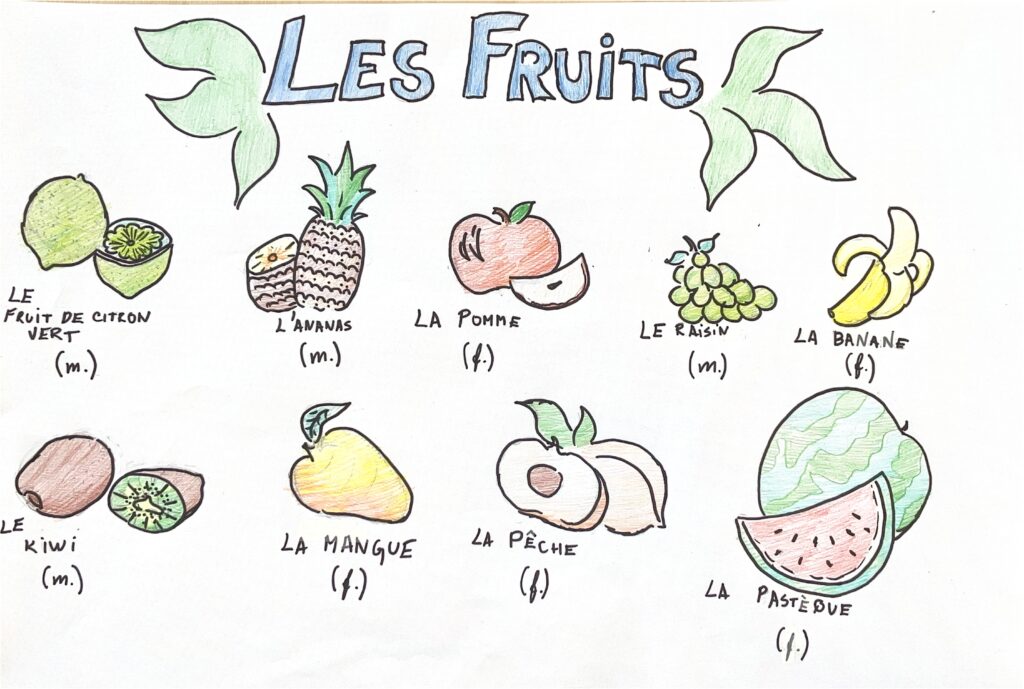 LES FRUITS
LE
FRUIT DE CITRON
VERT
(m.)
L'ANANAS
(m.)
LA POMME
(f.)
LE RAISIN
(m.)
LA BANANE
(f.)
LE
KIWI
(m.)
LA MANGUE
(f.)
LA PÊCHE
(f.)
LA PASTÈQUE
(f.)